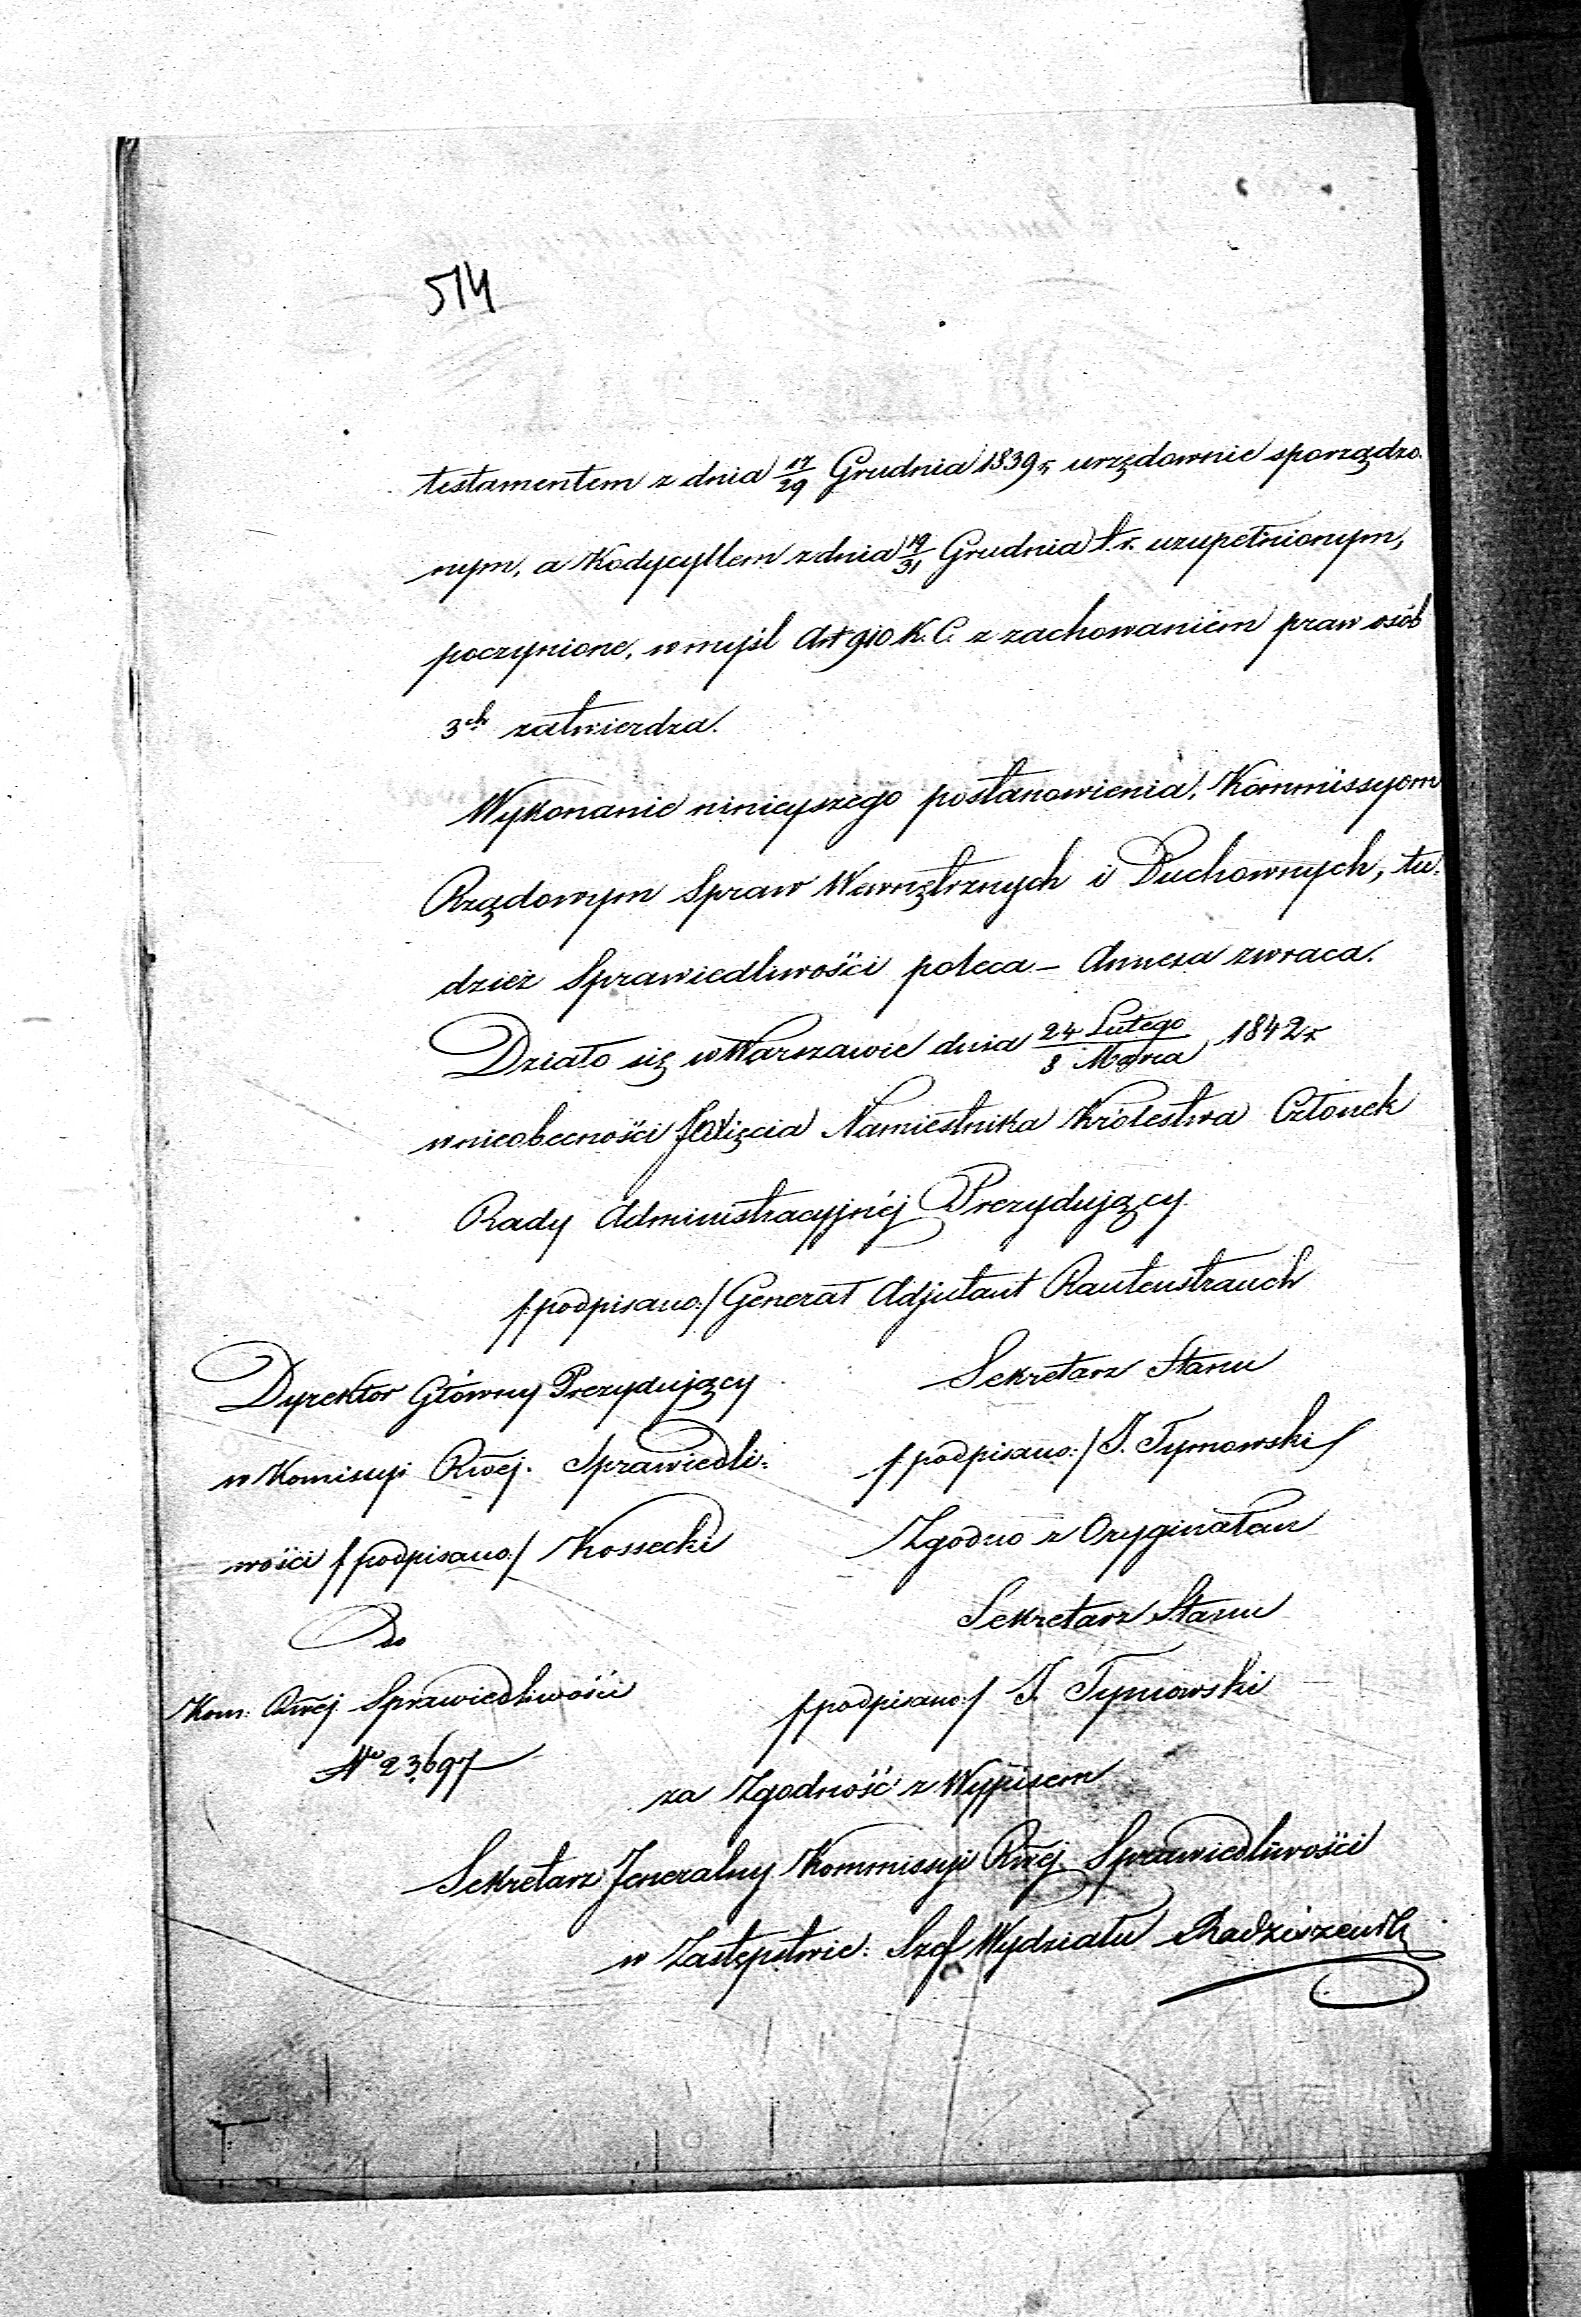 514
testamentem z dnia 17/29 Grudnia 1839 r. urzędownie sporządzo-
nym, a Kodycyllem z dnia 19/31 Grudnia t.r. uzupełnionym,
poczynione, w myśl Art 910 K.C. z zachowaniem praw osób
3ch zatwierdza.
Wykonanie ninieyszego postanowienia, Kommissyom
Rządowym Spraw Wewnętrznych i Duchownych, tu-
dzież Sprawiedliwości poleca – Annexa zwraca.
Działo się w Warszawie dnia 24 Lutego/8 Marca 1842 r
w nieobecności Xięcia Namiestnika Królestwa Członek
Rady Administracyjnéj Prezydujący
/:podpisano:/ Generał Adjutant Rautenstrauch
Dyrektor Główny Prezydujący
w Komisyi Rwéj. Sprawiedli-
wości /podpisano:/ Kossecki
Sekretarz Stanu
/podpisano:/ J. Tymowski
Zgodno z Oryginałem
Sekretarz Stanu
/podpisano:/ J. Tymowski
Do
Kom: Rwéj Sprawiedliwości
No 23697
za Zgodność z Wypisem
Sekretarz Jeneralny Kommisyi Rwéj Sprawiedliwości
w Zastępstwie: Szef Wydziału Radziszewski